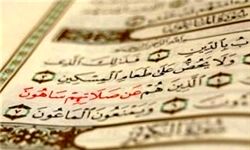 بُ بِالدِّينِ ۝ فَذَٰلِكَ الَّذِي
وَلَا يَحُضُّ عَلَىٰ طَعَامِ الْمِسْكِينِ
الَّذِينَ هُمْ عَن صَلَاتِهِمْ سَاهُونَ
وَيَمْنَعُونَ الْمَاعُونَ ۝٧